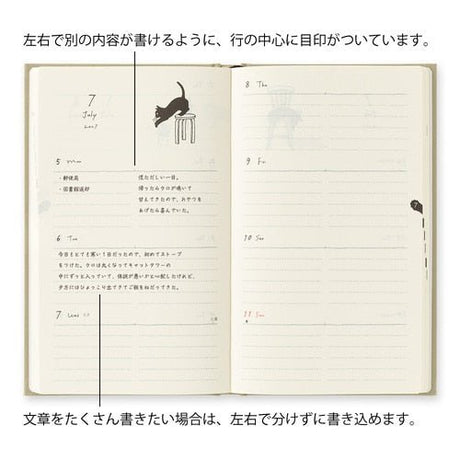 左右で別の内容が書けるように、行の中心に目印がついています。
7
July
5 Mon
・郵便局 慌ただしい一日。
・図書館返却 帰ったらクロが鳴いて
甘えてきたので、おやつを
あげたら喜んでいた。
6 Tue
今日もとても寒い1日だったので、初めてストーブ
をつけた。クロは丸くなってキャットタワーの
中にずっと入っていて、体調が悪いかと心配したけれど、
夕方にはひょっこり出てきてご飯をねだってきた。
7
8 Thu
9 Fri
10 Sat
11 Sun
7
文章をたくさん書きたい場合は、左右で分けずに書き込めます。